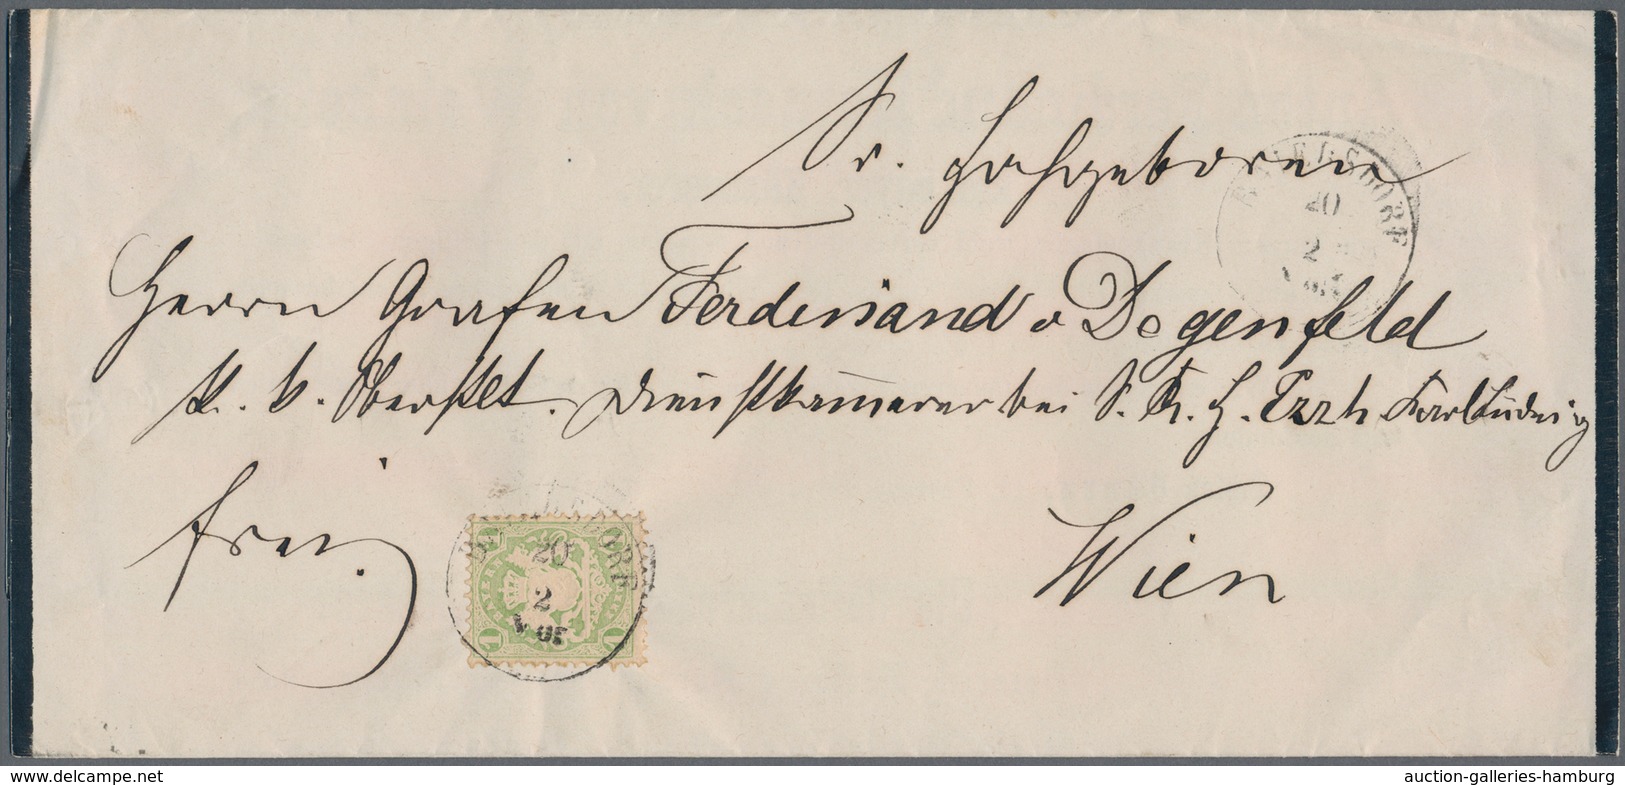 Sr. Hochgeboren
Herrn Grafen Ferdinand v Degenfeld
k. k. Oberstlt. Dienstkämmerer bei S. K. H. Erzh Karl Ludwig
frei.
Wien
20
2
20
2
BAYERN
1 1
www.delcampe.net
auction-galleries-hamburg